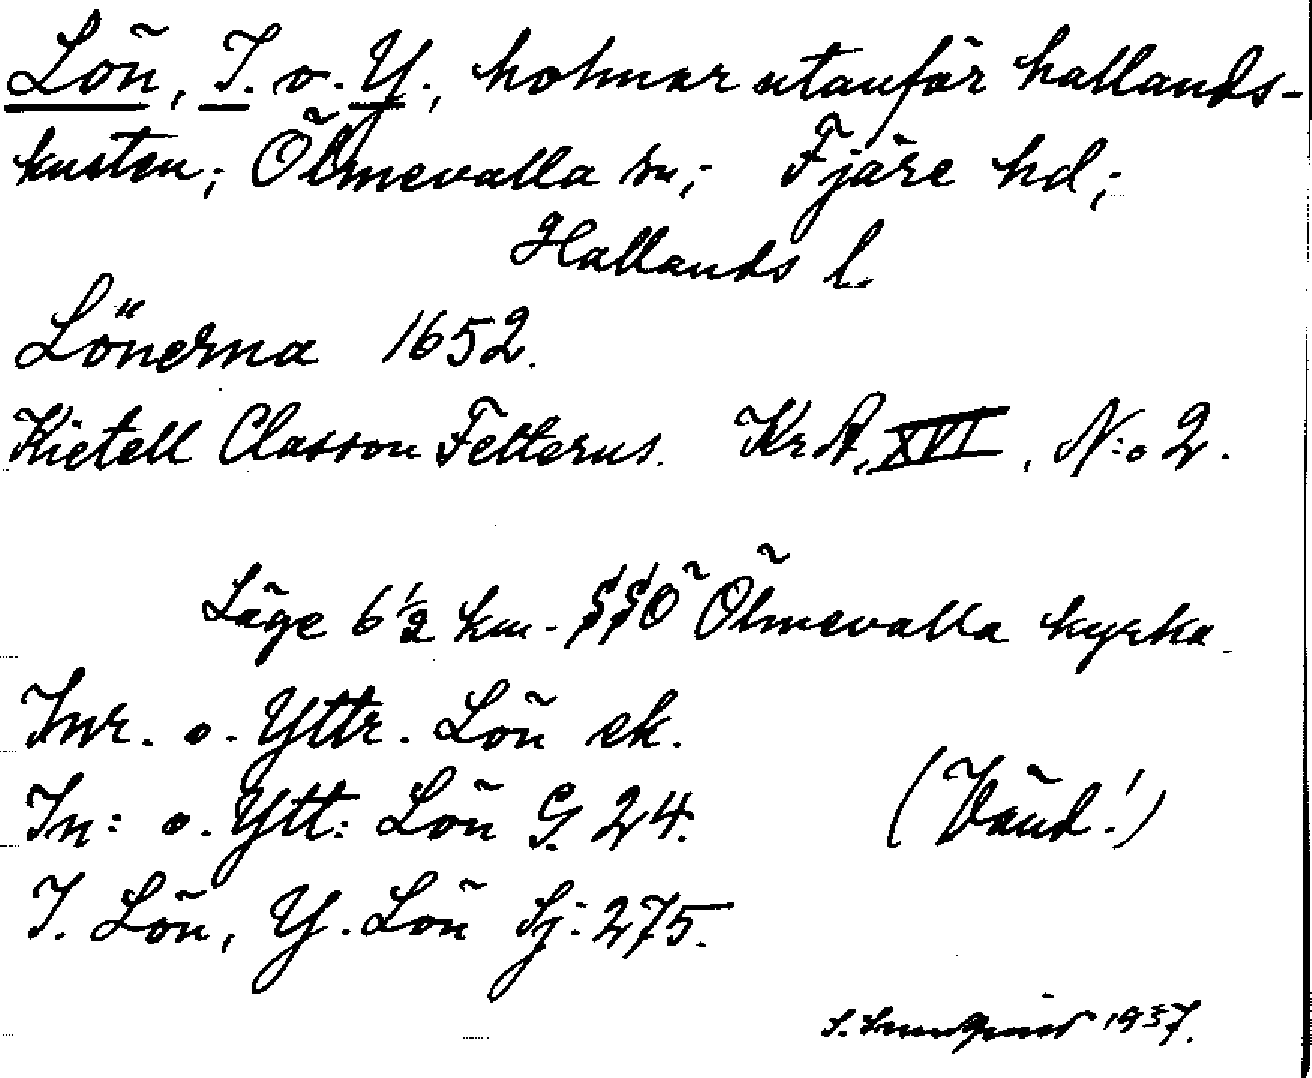 Lön, I. o. Y., holmar utanför hallands-
kusten; Ölmevalla sn; Fjäre hd;
Hallands l.
Lönerna 1652.
Kietell Classon Felterus. KrA, XVI, N:o 2.
Läge 6 1/2 km. SSÖ Ölmevalla kyrka
Inr. o. Yttr. Lön ek.
In: o. Ytt: Lön G. 24. (Vänd!)
I. Lön, Y. Lön Sj: 275.
1937.